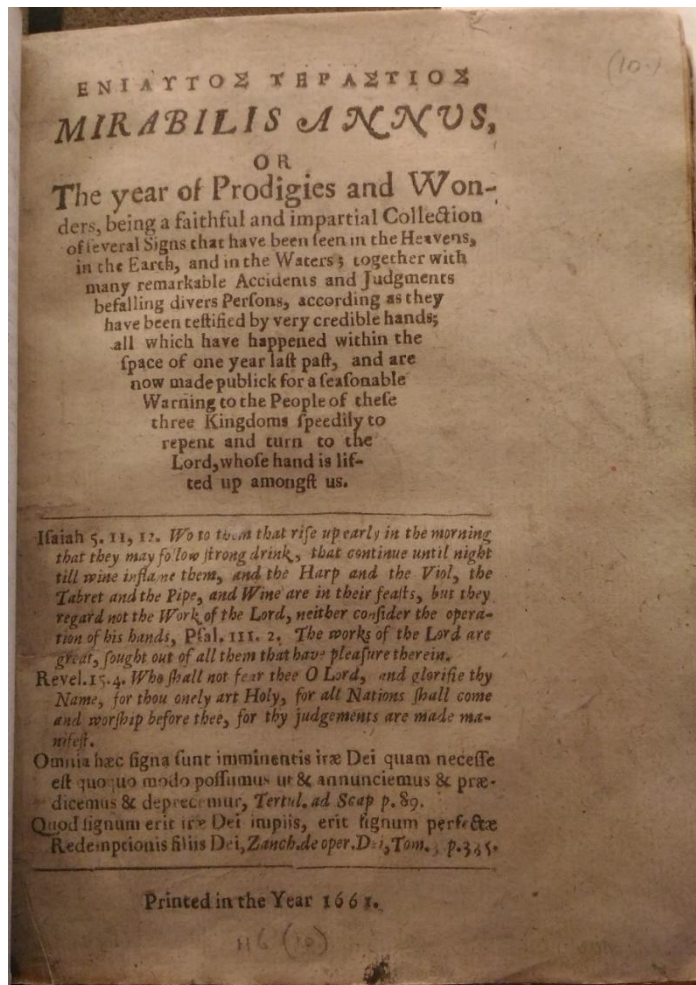 (10.)
ΕΝΙΑΥΤΟΣ ΤΕΡΑΣΤΙΟΣ
MIRABILIS ANNVS,
OR
The year of Prodigies and Won-
ders, being a faithful and impartial Collection
of ſeveral Signs that have been ſeen in the Heavens,
in the Earth, and in the Waters; together with
many remarkable Accidents and Judgments
befalling divers Perſons, according as they
have been teſtified by very credible hands;
all which have happened within the
ſpace of one year laſt paſt, and are
now made publick for a ſeaſonable
Warning to the People of theſe
three Kingdoms ſpeedily to
repent and turn to the
Lord, whoſe hand is lif-
ted up amongſt us.
Iſaiah 5. 11, 12. Wo to them that riſe up early in the morning
that they may follow ſtrong drink, that continue until night
till wine inflame them, and the Harp and the Viol, the
Tabret and the Pipe, and Wine are in their feaſts, but they
regard not the Work of the Lord, neither conſider the opera-
tion of his hands, Pſal. 111. 2. The works of the Lord are
great, ſought out of all them that have pleaſure therein.
Revel. 15. 4. Who ſhall not fear thee O Lord, and glorifie thy
Name, for thou onely art Holy, for all Nations ſhall come
and worſhip before thee, for thy judgements are made ma-
nifeſt.
Omnia hæc ſigna ſunt imminentis iræ Dei quam neceſſe
eſt quoquo modo poſſumus ut & annunciemus & præ-
dicemus & deprecemur, Tertul. ad Scap p. 89.
Quod ſignum erit iræ Dei impiis, erit ſignum perfectæ
Redemptionis filiis Dei, Zanch. de oper. Dei, Tom. p.
Printed in the Year 1661.
116 (10)